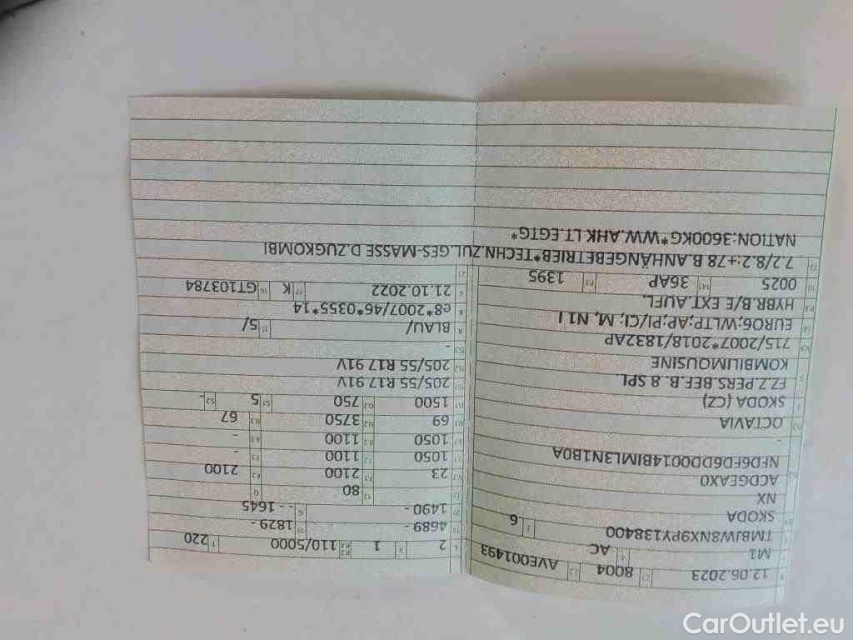 12.06.2023 8004 AVE001493
M1 AC
TMBJW8NX9PY138400 6
SKODA
NX
ACDGEAX0
NFD6FD6DD0014BIML3N1B0A
-
OCTAVIA
SKODA (CZ)
FZ.Z.PERS.BEF.B. 8 SPL.
KOMBILIMOUSINE
715/2007*2018/1832AP
EURO6;WLTP;AP;PI/CI; M, N1 I
HYBR.B/E EXT.AUFL.
0025 36AP 1395
2 1 110/5000 220
4689- 1829-
1490- - - 1645
80
23 2100 2100
1050 1100 -
1050 1100 -
69 3750 67
1500 750 5 -
205/55 R17 91V
205/55 R17 91V
-
BLAU/ 5/
e8*2007/46*0355*14
21.10.2022 K GT103784
7.2/8.2:+78 B.ANHÄNGEBETRIEB*TECHN.ZUL.GES-MASSE D.ZUGKOMBI
NATION:3600KG*WW.AHK LT.EGTG*
CarOutlet.eu